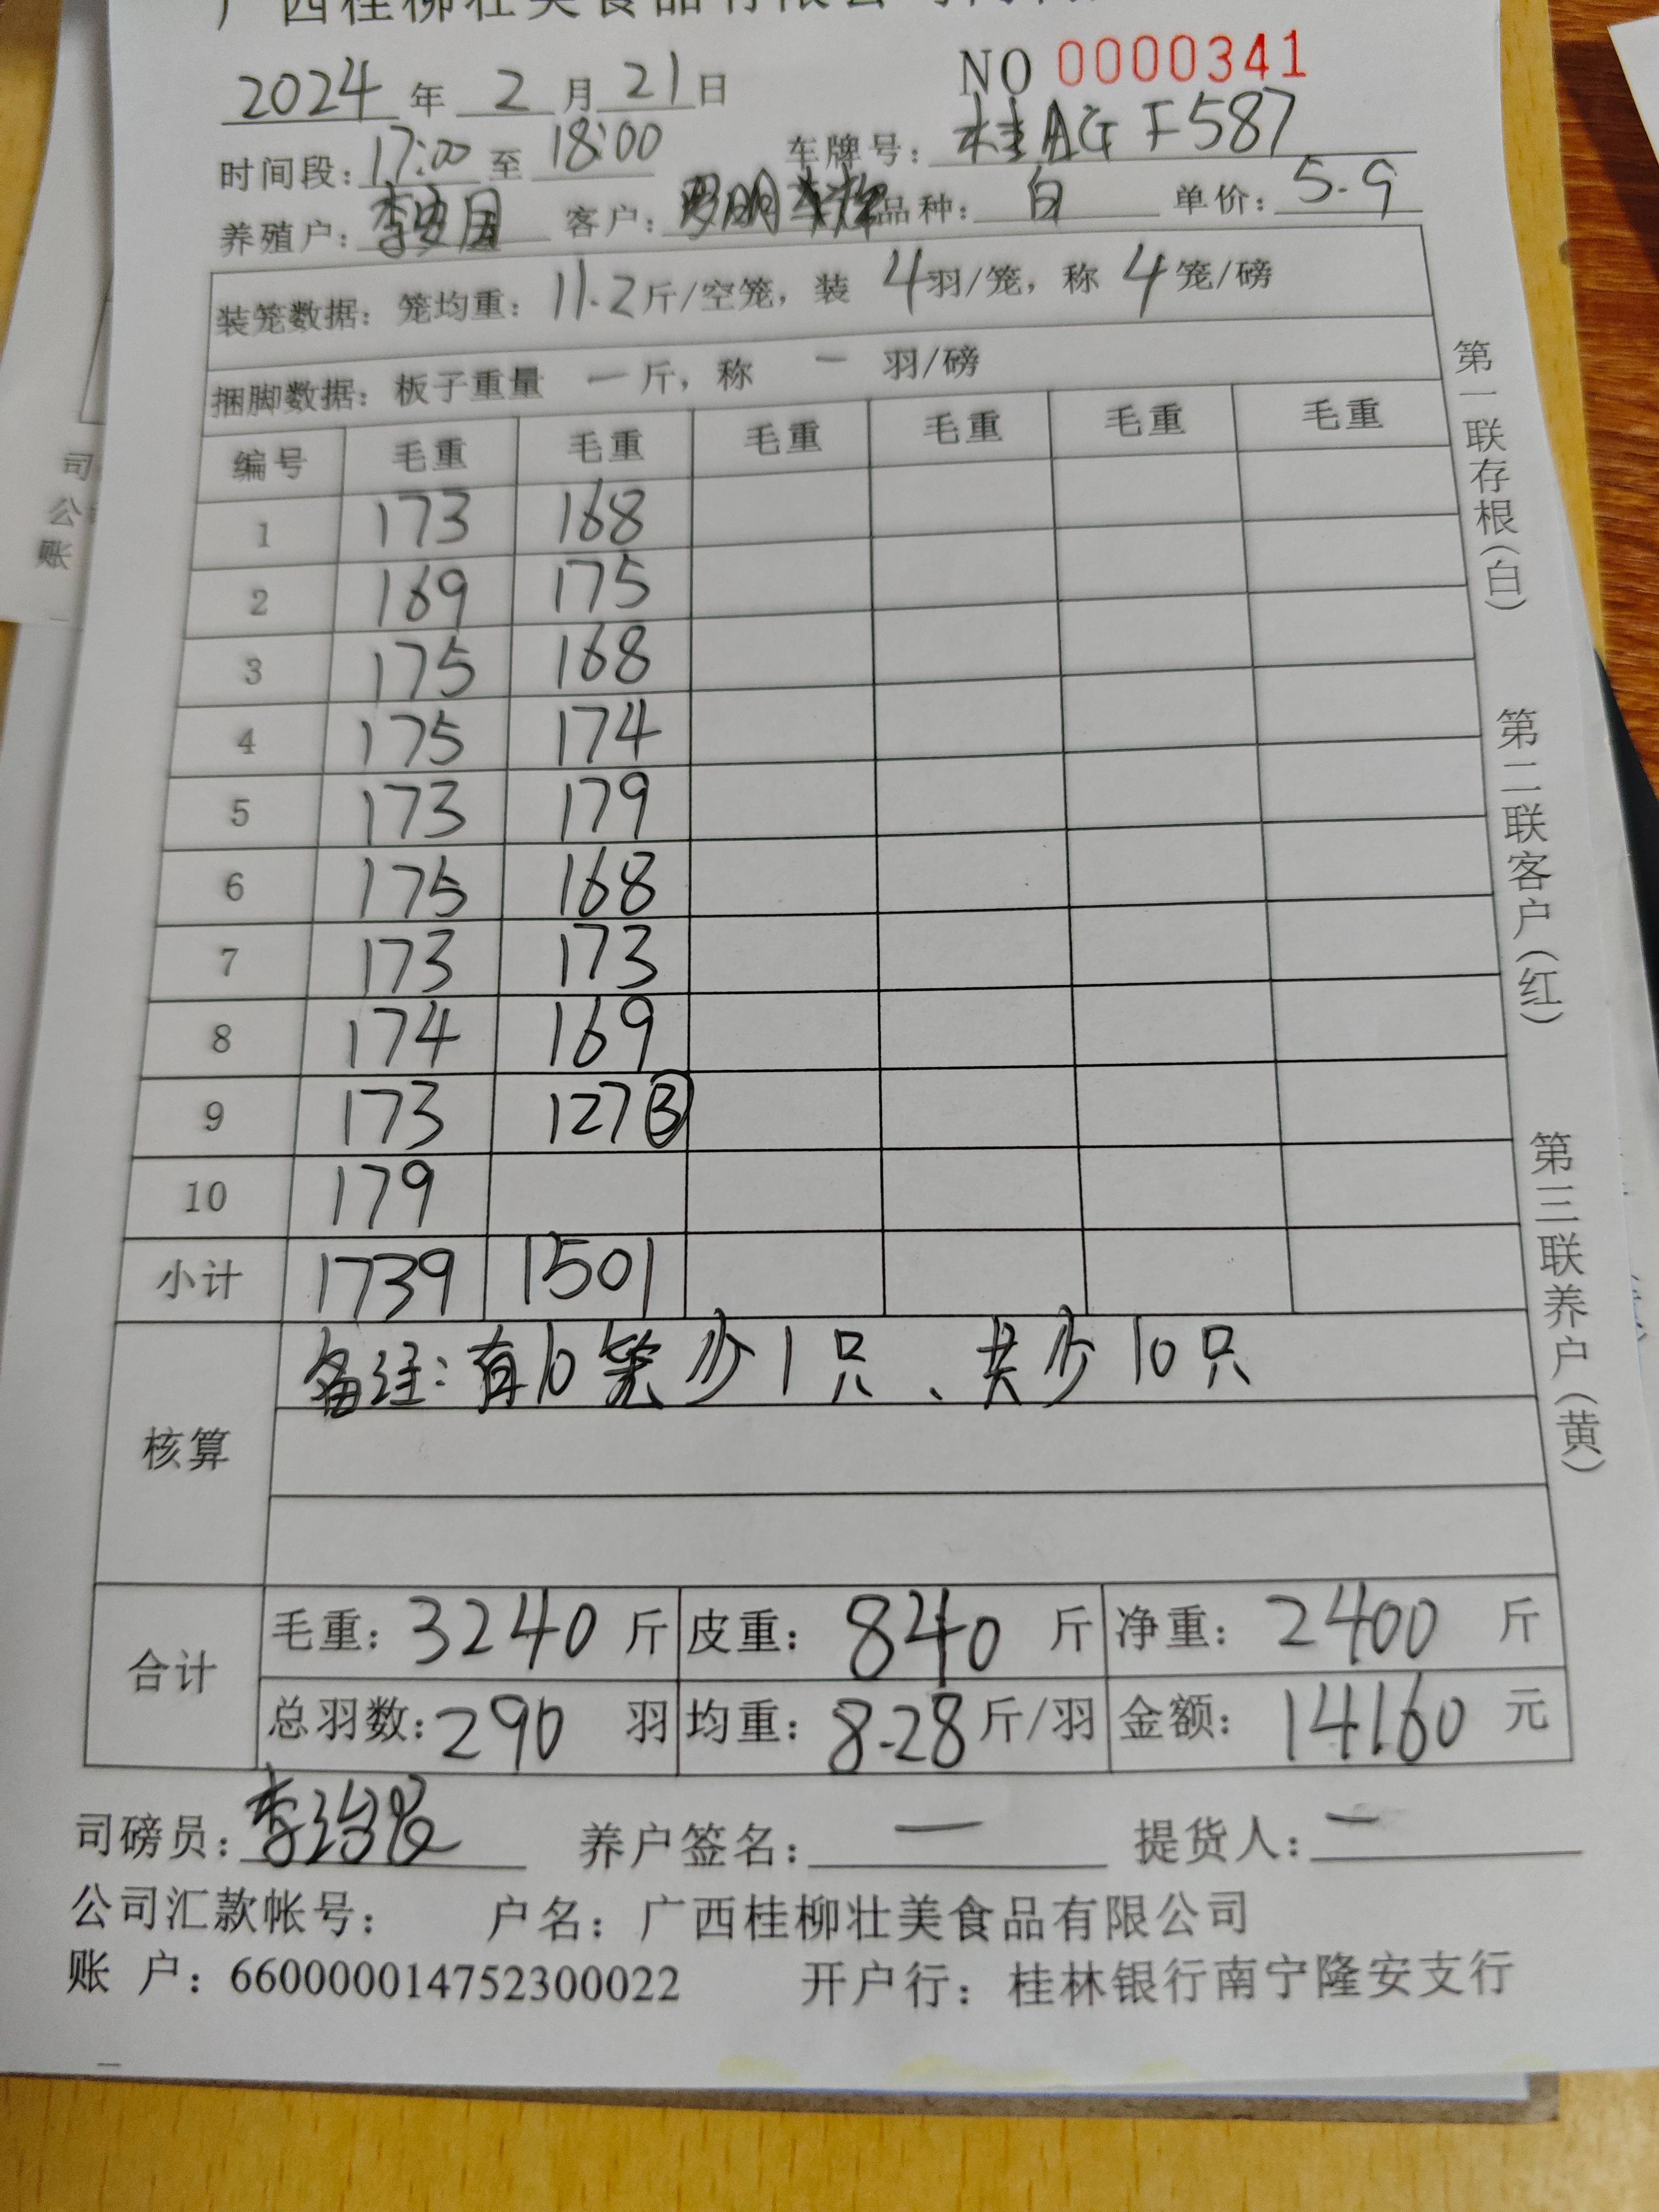 广西桂柳壮美食品有限公司
NO 0000341
2024年 2月 21日
时间段：17:00 至 18:00 车牌号：桂AGF587
养殖户：李 月 客户：罗明 品种：白 单价：5.9
装笼数据：笼均重：11.2斤/空笼，装 4羽/笼，称 4笼/磅
捆脚数据：板子重量 一斤，称 一 羽/磅
编号 毛重 毛重 毛重 毛重 毛重 毛重
1 173 168
2 169 175
3 175 168
4 175 174
5 173 179
6 175 168
7 173 173
8 174 169
9 173 127③
10 179
小计 1739 1501
核算 备注：有10笼少1只、共少10只
合计 毛重：3240斤 皮重：840斤 净重：2400斤
总羽数：290羽 均重：8.28斤/羽 金额：14160元
司磅员：李治 养户签名：— 提货人：—
公司汇款帐号： 户名：广西桂柳壮美食品有限公司
账 户：660000014752300022 开户行：桂林银行南宁隆安支行
第一联存根（白）
第二联客户（红）
第三联养户（黄）
司
公
账